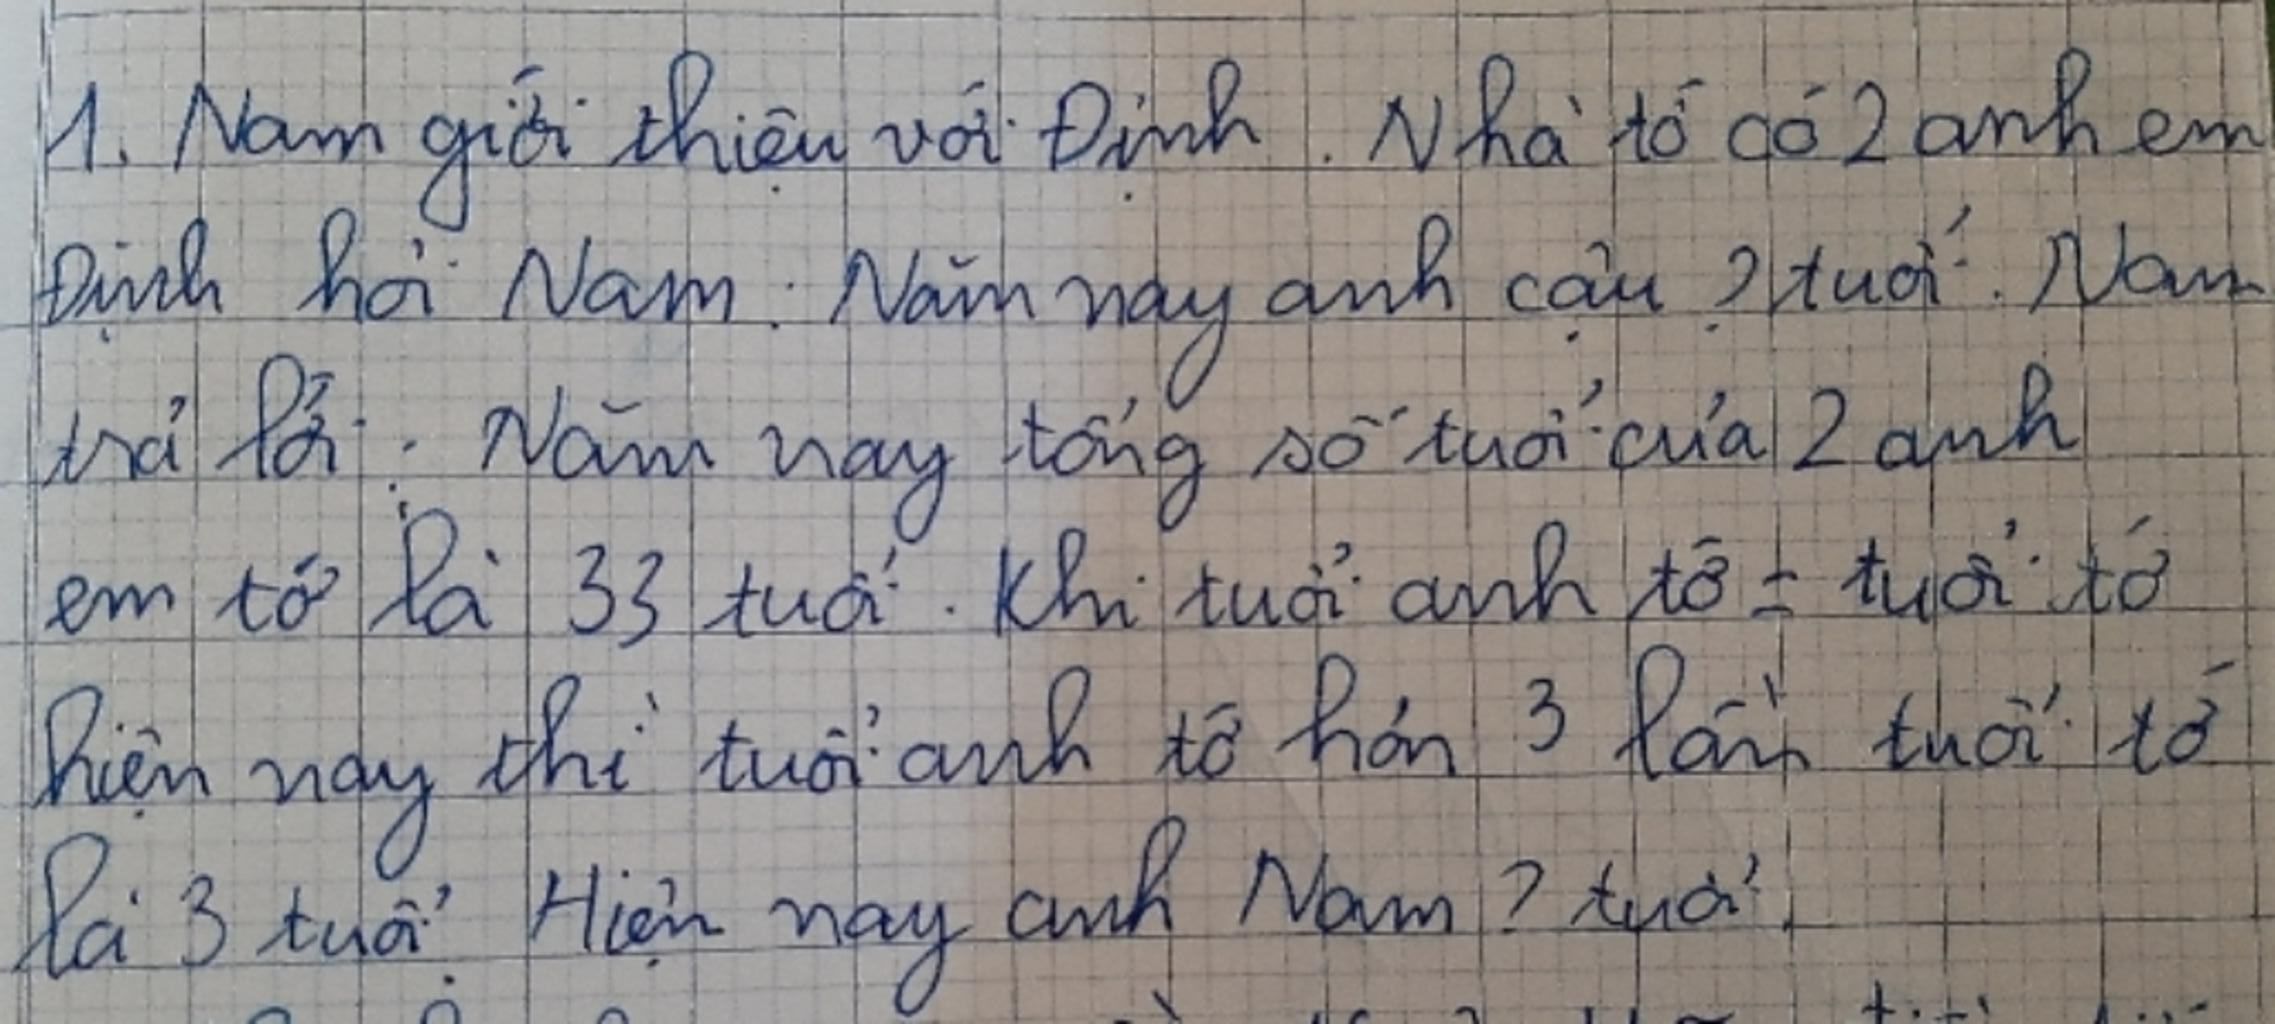 1. Nam giới thiệu với Định. Nhà tớ có 2 anh em
Định hỏi Nam: Năm nay anh cậu ? tuổi. Nam
trả lời: Năm nay tổng số tuổi của 2 anh
em tớ là 33 tuổi. Khi tuổi anh tớ = tuổi tớ
hiện nay thì tuổi anh tớ hơn 3 lần tuổi tớ
là 3 tuổi Hiện nay anh Nam ? tuổi.